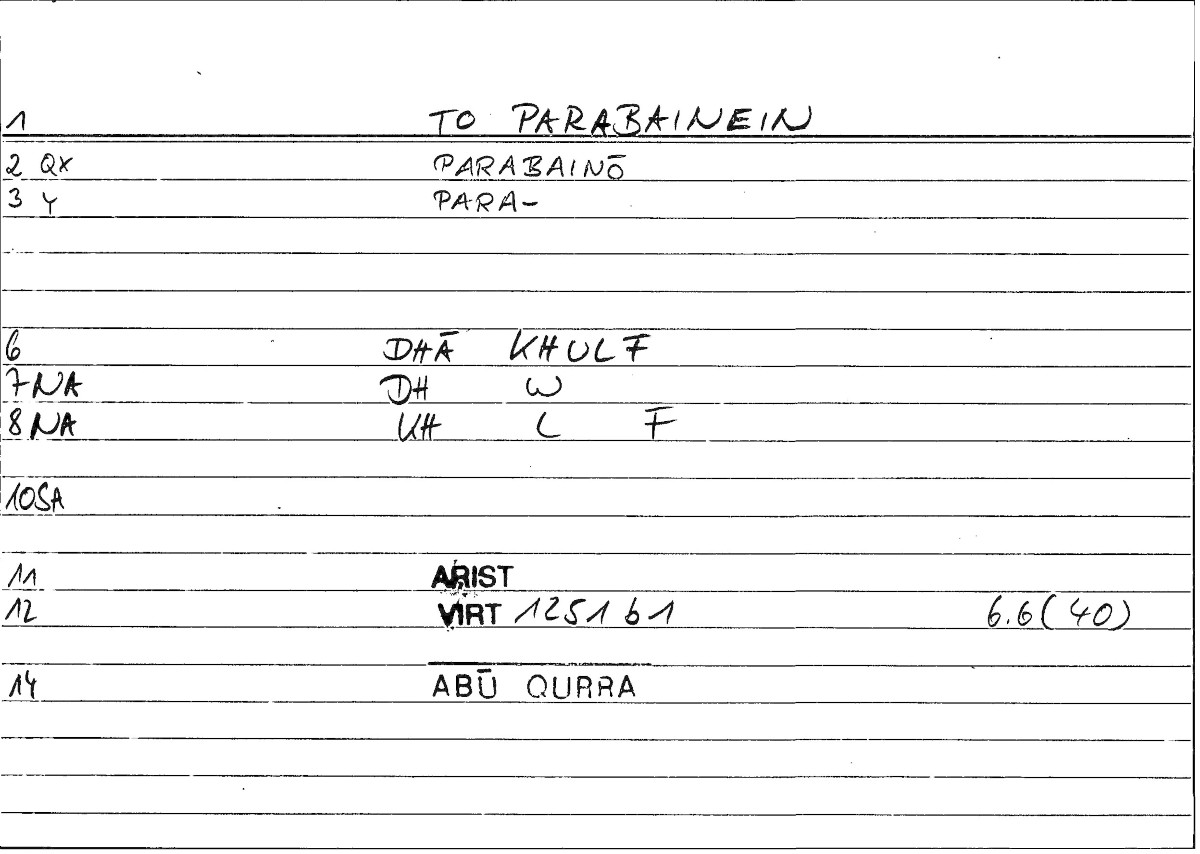 1 TO PARABAINEIN
2 QX PARABAINŌ
3 Y PARA-
6 DHĀ KHULF
7 NA DH W
8 NA KH L F
10SA
11 ARIST
12 VIRT 1251 b 1 6.6(40)
14 ABŪ QURRA